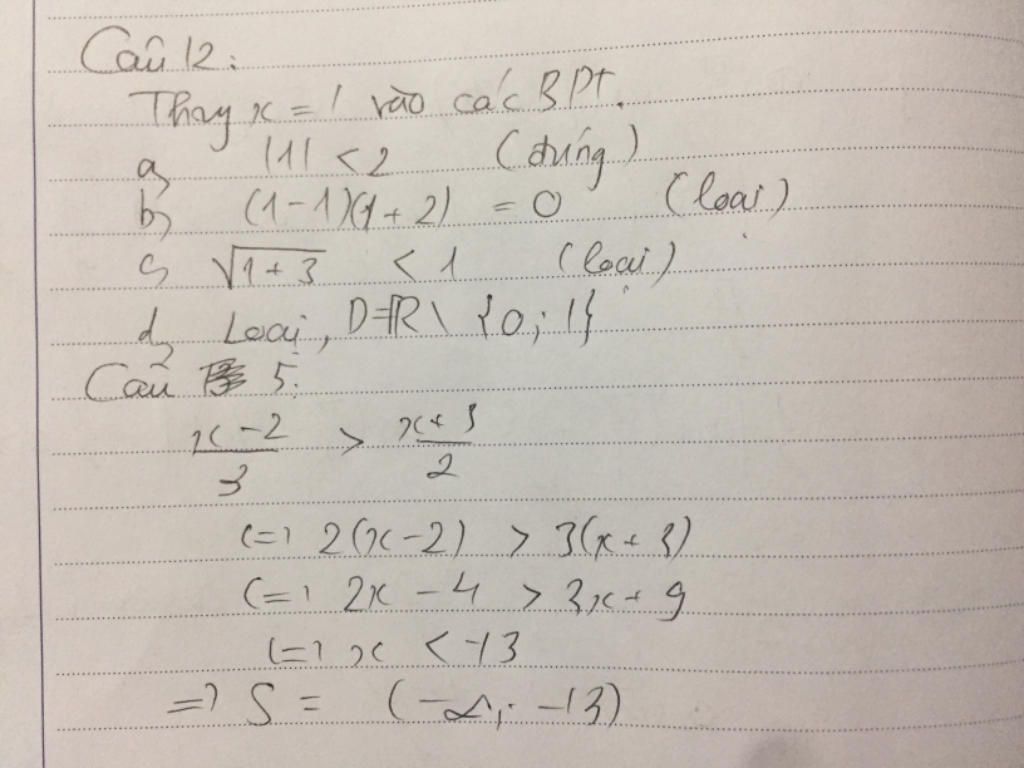 Câu 12:
Thay x = 1 vào các BPT.
a, |1| < 2 (đúng)
b, (1-1)(1+2) = 0 (loại)
c, √(1+3) < 1 (loại)
d, Loại, D=ℝ\{0;1}
Câu 5:
(x-2)/3 > (x+3)/2
<=> 2(x-2) > 3(x+3)
<=> 2x - 4 > 3x + 9
<=> x < -13
=> S = (-∞; -13)